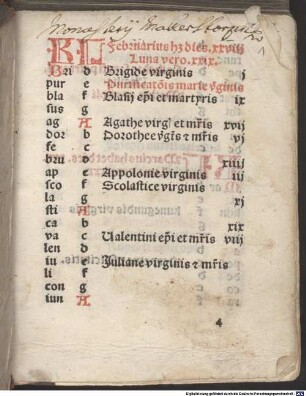 Monasterij Mallerstorffensis
1
KL Februarius hz dies. xxviij
Luna vero. xxix.
Bri d Brigide virginis j
pur e Purificatiõis marie v̕ginis
bla f Blasij ep̃i et martyris ix
sus g
ag A Agathe virg̕ et mr̃is xvij
dor b Dorothee v̕gĩs ⁊ mr̃is vj
fe c
bru d xiiij
ap e Appolonie virginis iij
sco f Scolastice virginis
la g xj
sti A
ca b xix
va c Ualentini ep̃i et mr̃is viij
len d
iu e Juliane virginis ⁊ mr̃is
li f
con g
iun A
4